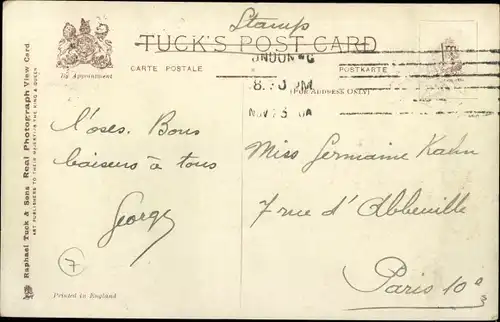 Stamp
TUCK'S POST CARD
By Appointment
CARTE POSTALE
POSTKARTE
(FOR ADDRESS ONLY)
8. PM
NOV
l'oses. Bons
baisers à tous
George
7
Miss Germaine Kahn
7 rue d'Abbeville
Paris 10e
Printed in England
Raphael Tuck & Sons Real Photograph View Card
ART PUBLISHERS TO THEIR MAJESTIES THE KING & QUEEN